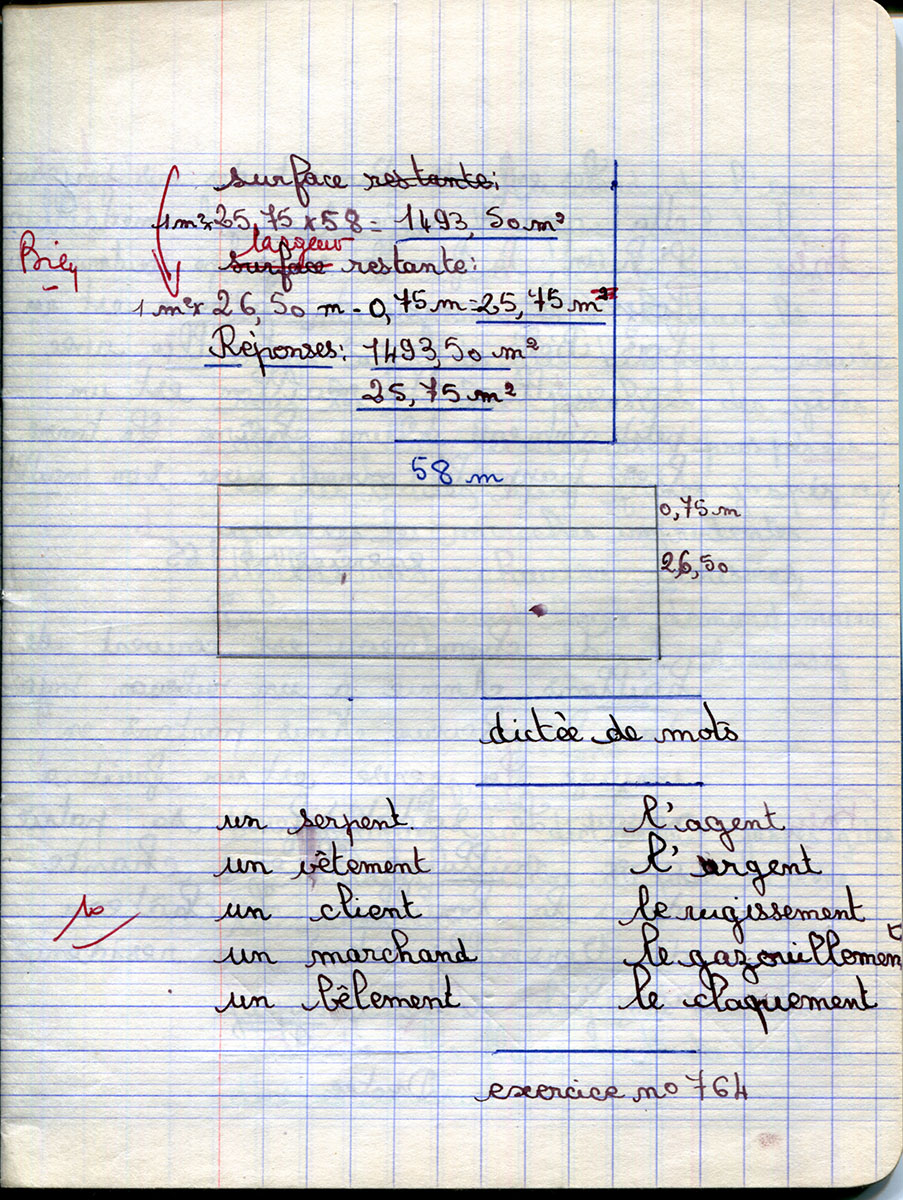 surface restante:
1m² x 25,75 x 58 = 1493,50 m²
largeur
Bien
surface restante:
1 m² x 26,50 m - 0,75 m = 25,75 m²
Réponses: 1493,50 m²
25,75 m²
58 m
0,75 m
26,50
dictée de mots
un serpent. l'agent
un vêtement l'argent
un client le rugissement
10
un marchand le gazouillement
un bêlement le claquement
exercice no 764